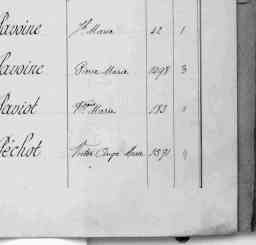 Savoine Jh Marie 42 1
Savoine Pierre Marie 1898 3
Saviot Marie 183
Péchot Victor Ange Marie 1891 4